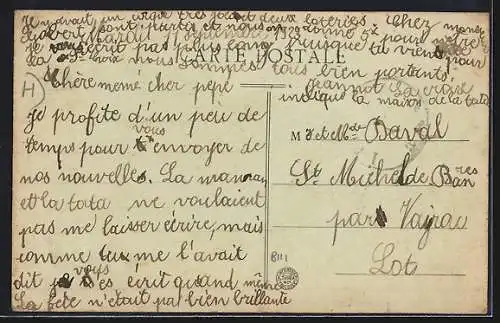 il y avait un cirque très joli et deux loteries. Chez
sont partis et nous donne 5f pour
Mardi 1929
je vous écrit pas plus long puisque ta viens pour
la Ste Croix nous sommes tous bien portants.
CARTE POSTALE
Jeannot La croix
indique la maison de la tata
H
Chère mémé cher pépé
je profite d'un peu de
temps pour vous envoyer de
nos nouvelles. La maman
et la tata ne voulaient
pas me laisser écrire, mais
comme tu me l'avait
dit je vous écrit quand même
La fête n'était pas bien brillante
M r et Mde Baval
St Michel de Banières
par Vayrac
Lot